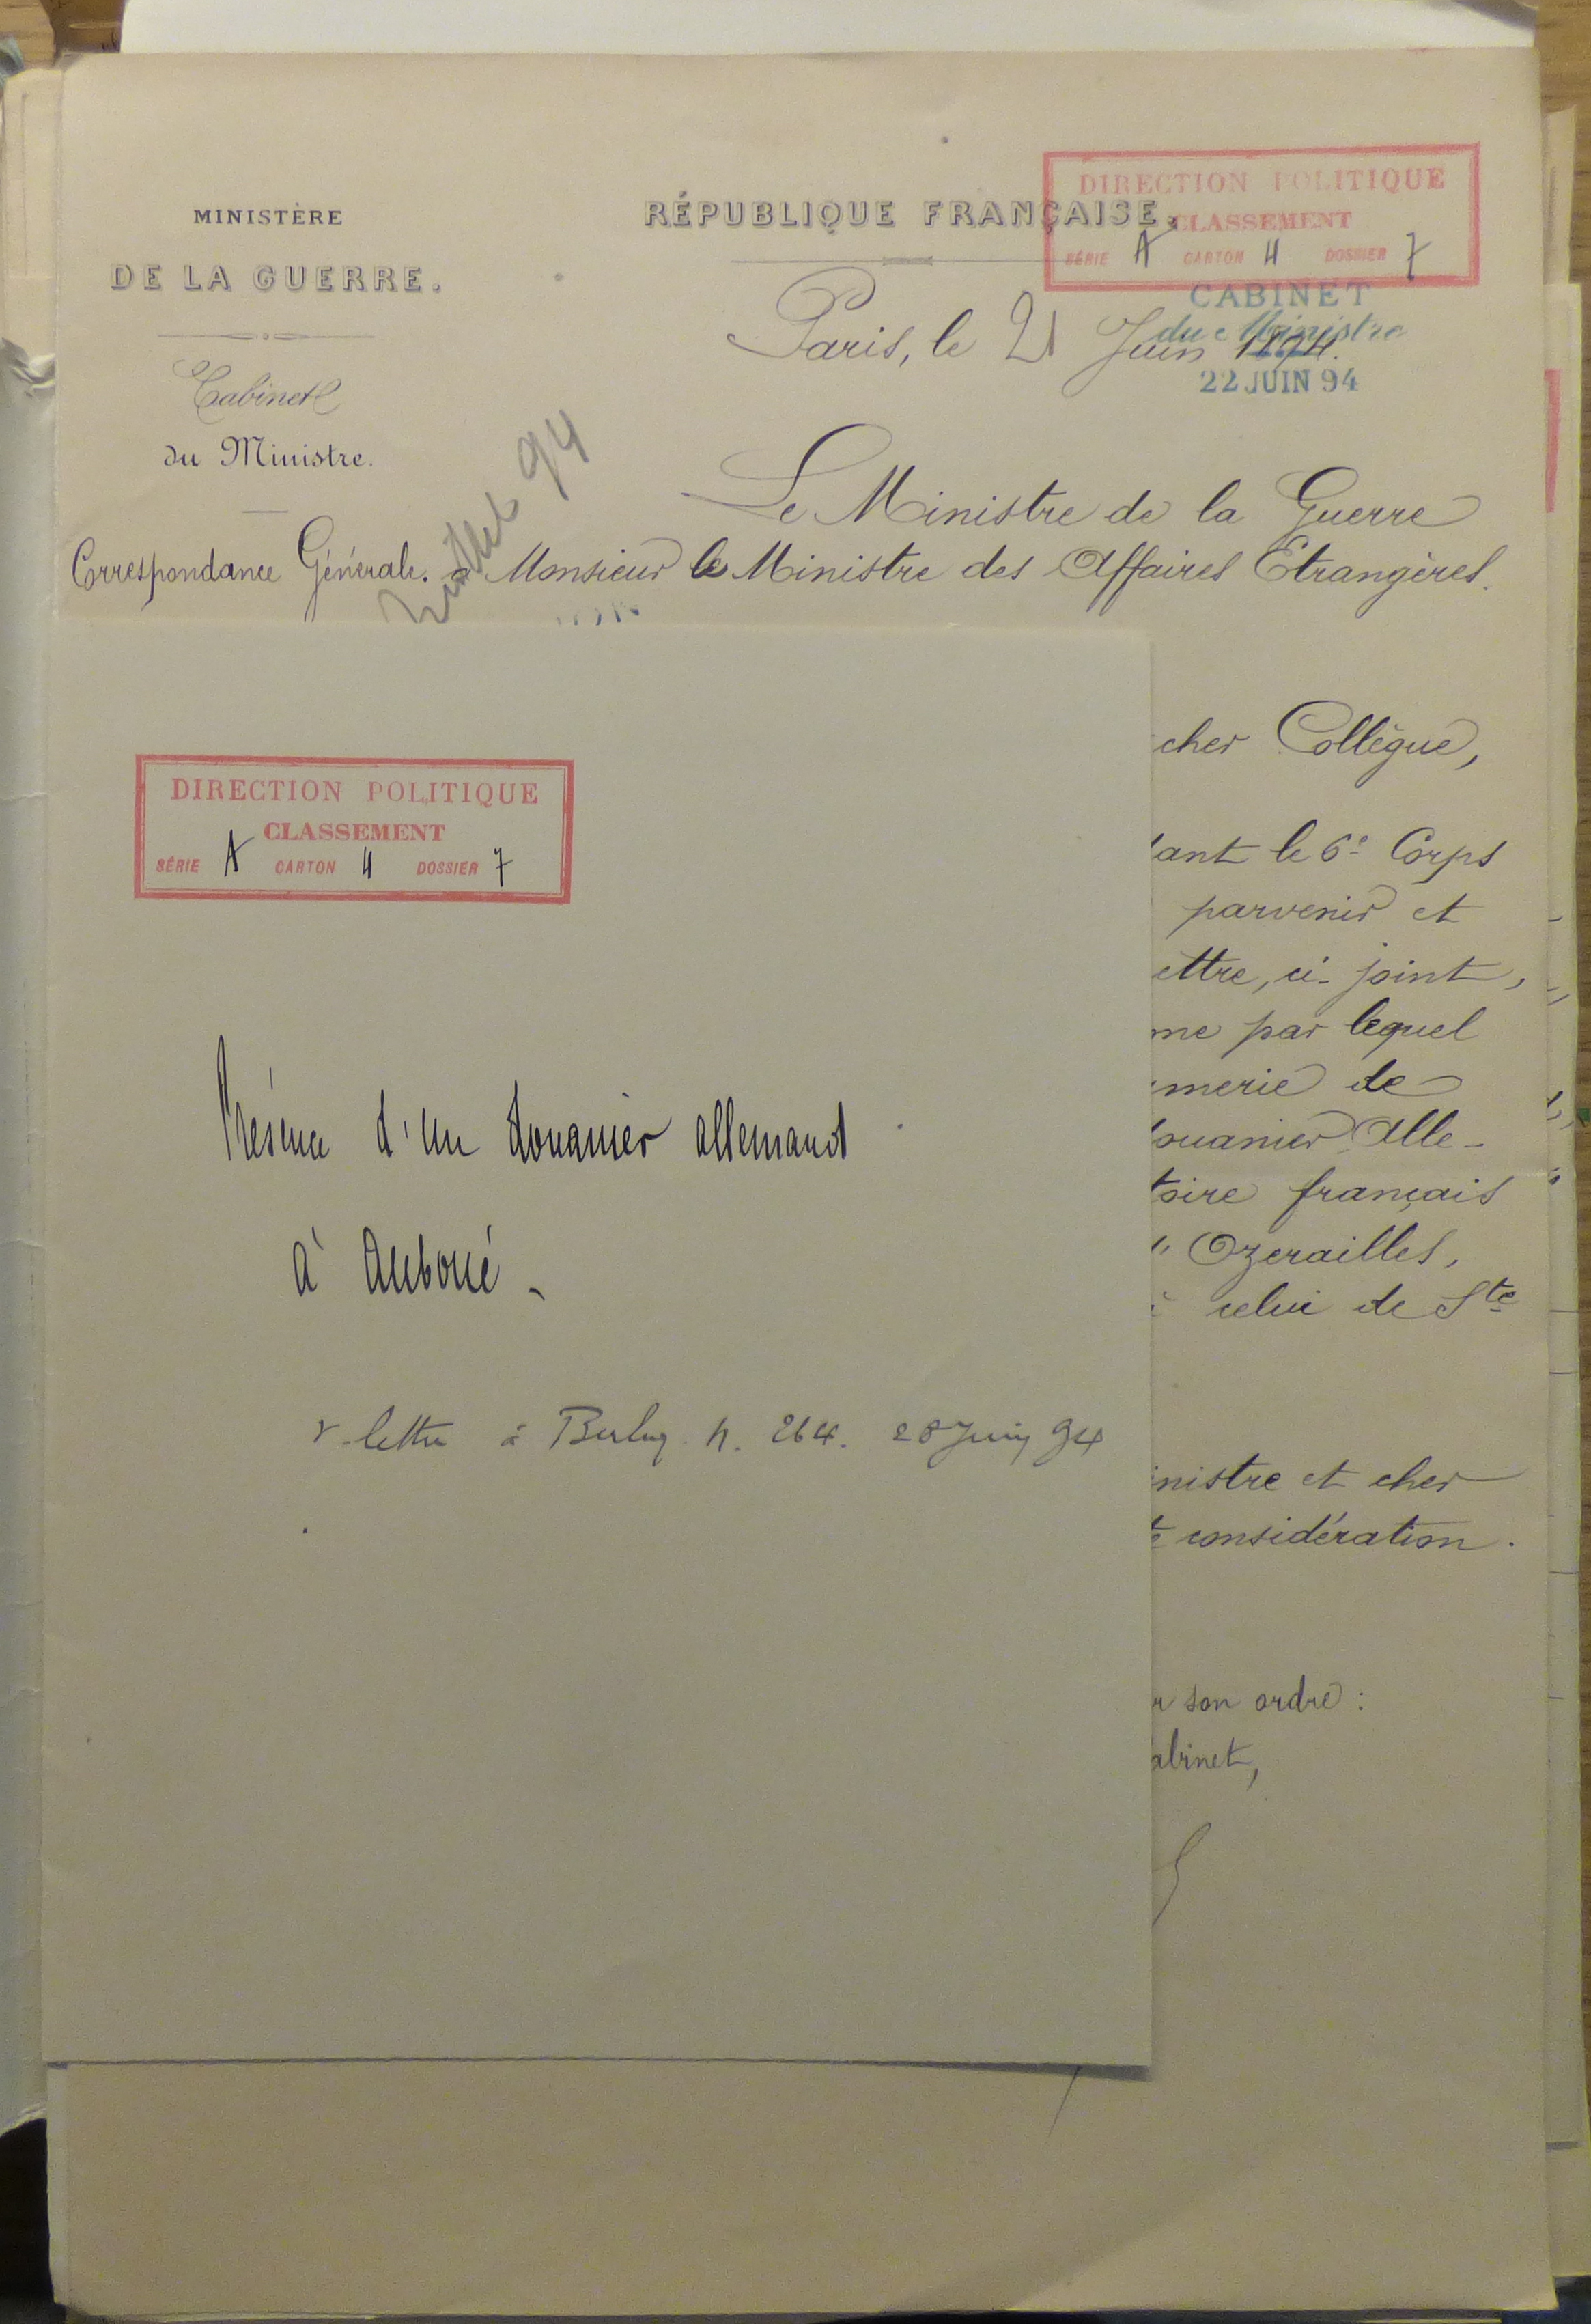 MINISTÈRE
DE LA GUERRE.
Cabinet
du Ministre.
Correspondance Générale.
RÉPUBLIQUE FRANÇAISE.
DIRECTION POLITIQUE
CLASSEMENT
SÉRIE A CARTON 4 DOSSIER 7
CABINET
du Ministre
22 JUIN 94
Paris, le 21 Juin 1894.
Juillet 94
Le Ministre de la Guerre
à Monsieur le Ministre des Affaires Etrangères.
cher Collègue,
ant le 6e Corps
parvenir et
ettre, ci-joint,
me par lequel
merie de
ouanier Alle-
toire français
Ozerailles,
celui de Ste
inistre et cher
considération.
r son ordre :
abinet,
DIRECTION POLITIQUE
CLASSEMENT
SÉRIE A CARTON 4 DOSSIER 7
Présence d'un douanier allemand
à Auboué.
v. lettre à Berlin n. 264. 28 Juin 94